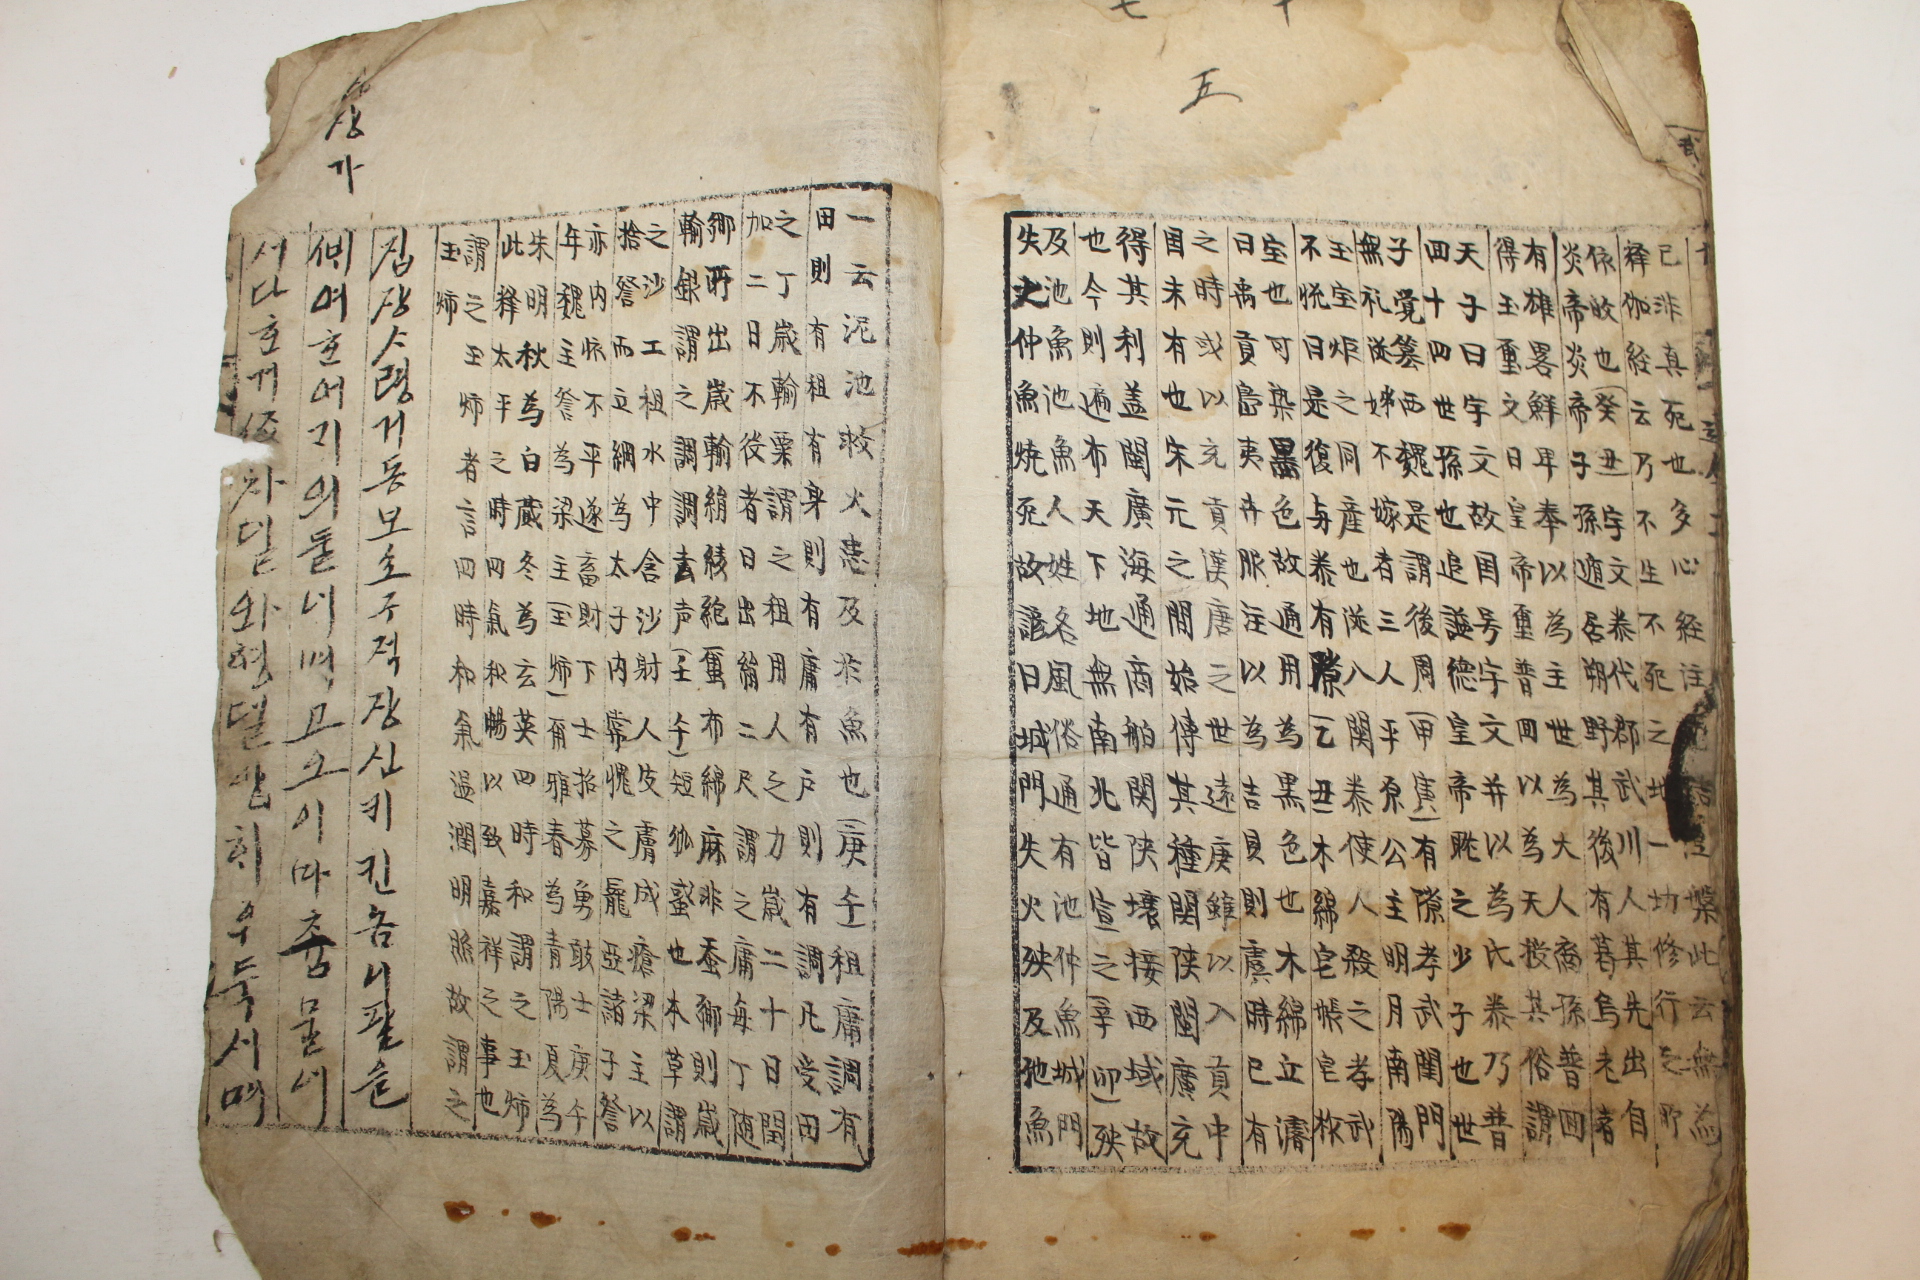 七 十
五
已非真死也多心経注槃此云無為
釋伽経云乃不生不死之地一坊修行之所
依故也(癸丑)宇文泰代郡武川人其先出自
炎帝炎帝子孫遁居朔野其後有葛烏老者
有雄畧鮮卑奉以為主世為大人裔孫普囬
得玉璽文曰皇帝璽普囬以為天授其俗謂
天子曰宇文故国号宇文并以為氏泰乃普
四十四世孫也追謚德皇帝眦之少子也世
子覺篡西魏是謂後周(甲寅)有隙孝武閨門
無礼従姊不嫁者三人平原公主明月南陽
玉宝炬之同産也従入関泰使人殺之孝武
不悅曰是復与泰有隙(乙丑)木綿皂帳皂
宝也可染黒色故通用為黒色也木綿立濤
曰禹貢島夷卉服注以為吉貝則虞時已有
之時或以充貢漢唐之世遠庚雖以入貢中
国未有也宋元之間始傳其種関陝閩廣充
得其利盖閩廣海通商舶関陝壤接西域故
也今則遍布天下地無南北皆宣之(辛卯)殃
及池魚池魚人姓名風俗通有池仲魚城門
失火仲魚燒死故諺曰城門失火殃及池魚
一云泥池救火患及於魚也(庚午)租庸調有
田則有租有身則有庸有戶則有調凡受田
之丁歲輸粟謂之租用人之力歲二十日閏
加二日不役者日出絹二尺謂之庸每丁随
鄉所出歲輸絹綾絁蚕布綿麻非蚕鄉則歲
輸銀謂之調調去声(壬午)短狐蜮也本草謂
之沙工祖水中含沙射人皮膚成瘡梁主以
捨詧而立綱為太子内常愧之寵亞諸子詧
亦内怀不平遂畜財下士招募勇敢士庚午
年魏主詧為梁主(玉炉)爾雅春為青陽夏為
朱明秋為白蔵冬為玄英四時和謂之玉炉
此释太平之時四氣和暢以致嘉祥之事也
謂之玉炉者言四時和氣温潤明照故謂之
玉炉
집장ᄉ령거동보소주적장신키긴놈니팔을
여흐여귀의돌니며고으이마춤물너
서다흐거 차딜와 우둑서며
상가